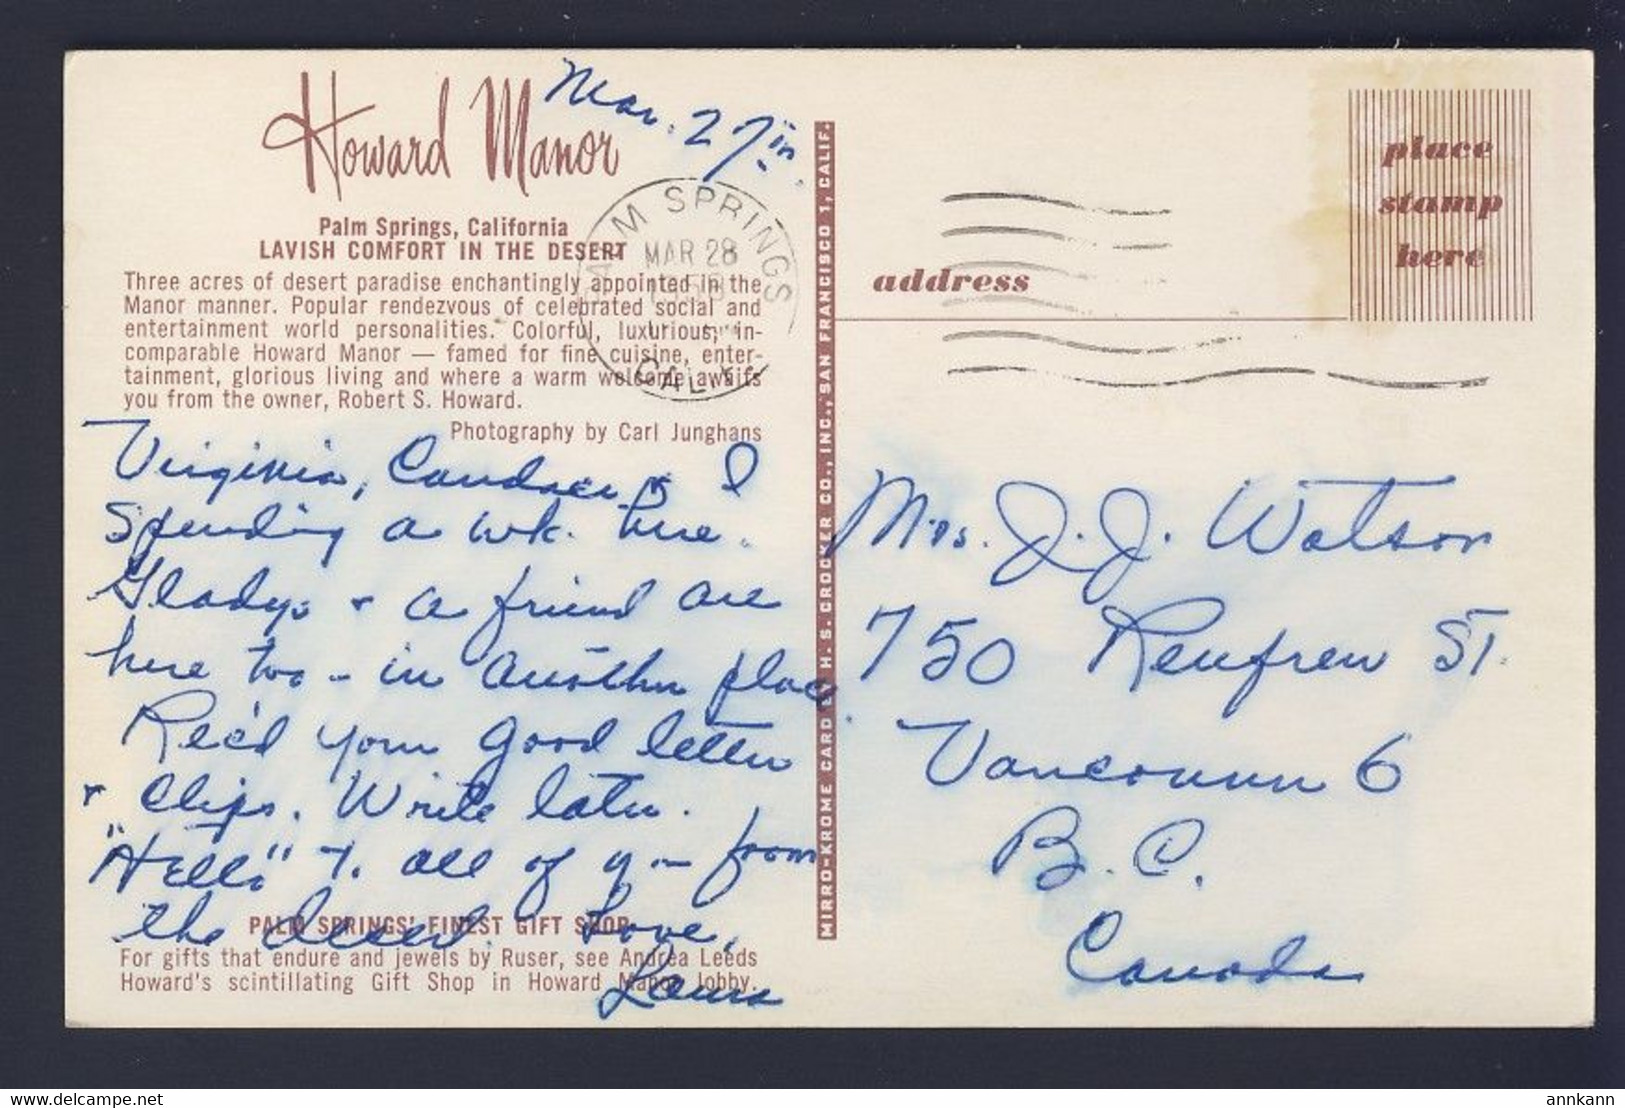 Howard Manor
Mar. 27in.
Palm Springs, California
LAVISH COMFORT IN THE DESERT
Three acres of desert paradise enchantingly appointed in the
Manor manner. Popular rendezvous of celebrated social and
entertainment world personalities. Colorful, luxurious, in-
comparable Howard Manor — famed for fine cuisine, enter-
tainment, glorious living and where a warm welcome awaits
you from the owner, Robert S. Howard.
Photography by Carl Junghans
PALM SPRINGS
MAR 28
CALIF.
Virginia, & I
Spending a wk. here.
Gladys & a friend are
here too - in another place.
Rec'd your good letter
& clips. Write later.
"Hello" to all of you from
the desert. Love,
Laura
PALM SPRINGS' FINEST GIFT SHOP
For gifts that endure and jewels by Ruser, see Andrea Leeds
Howard's scintillating Gift Shop in Howard Manor lobby.
MIRRO-KROME CARD BY H. S. CROCKER CO., INC., SAN FRANCISCO 1, CALIF.
place
stamp
here
address
Mrs. J. J. Watson
750 Renfrew ST.
Vancouver 6
B. C.
Canada
delcampe.net
annkann